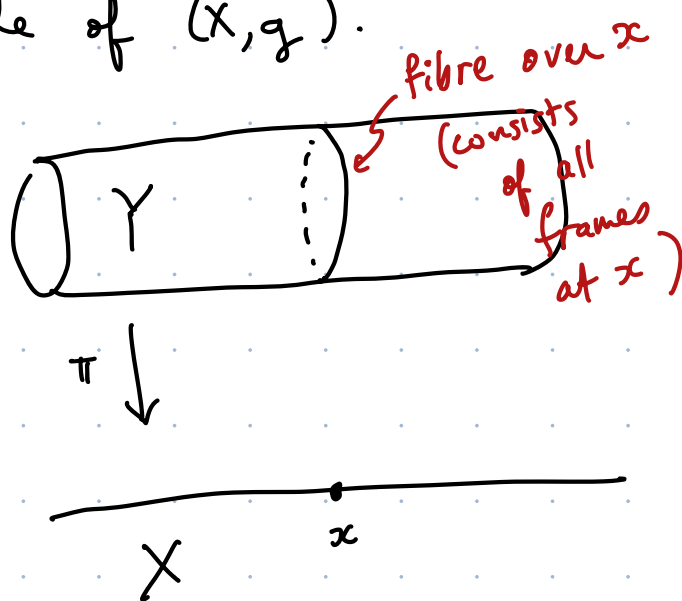 of (X, g).
fibre over x
(consists
of all
frames
at x)
Y
π
x
X